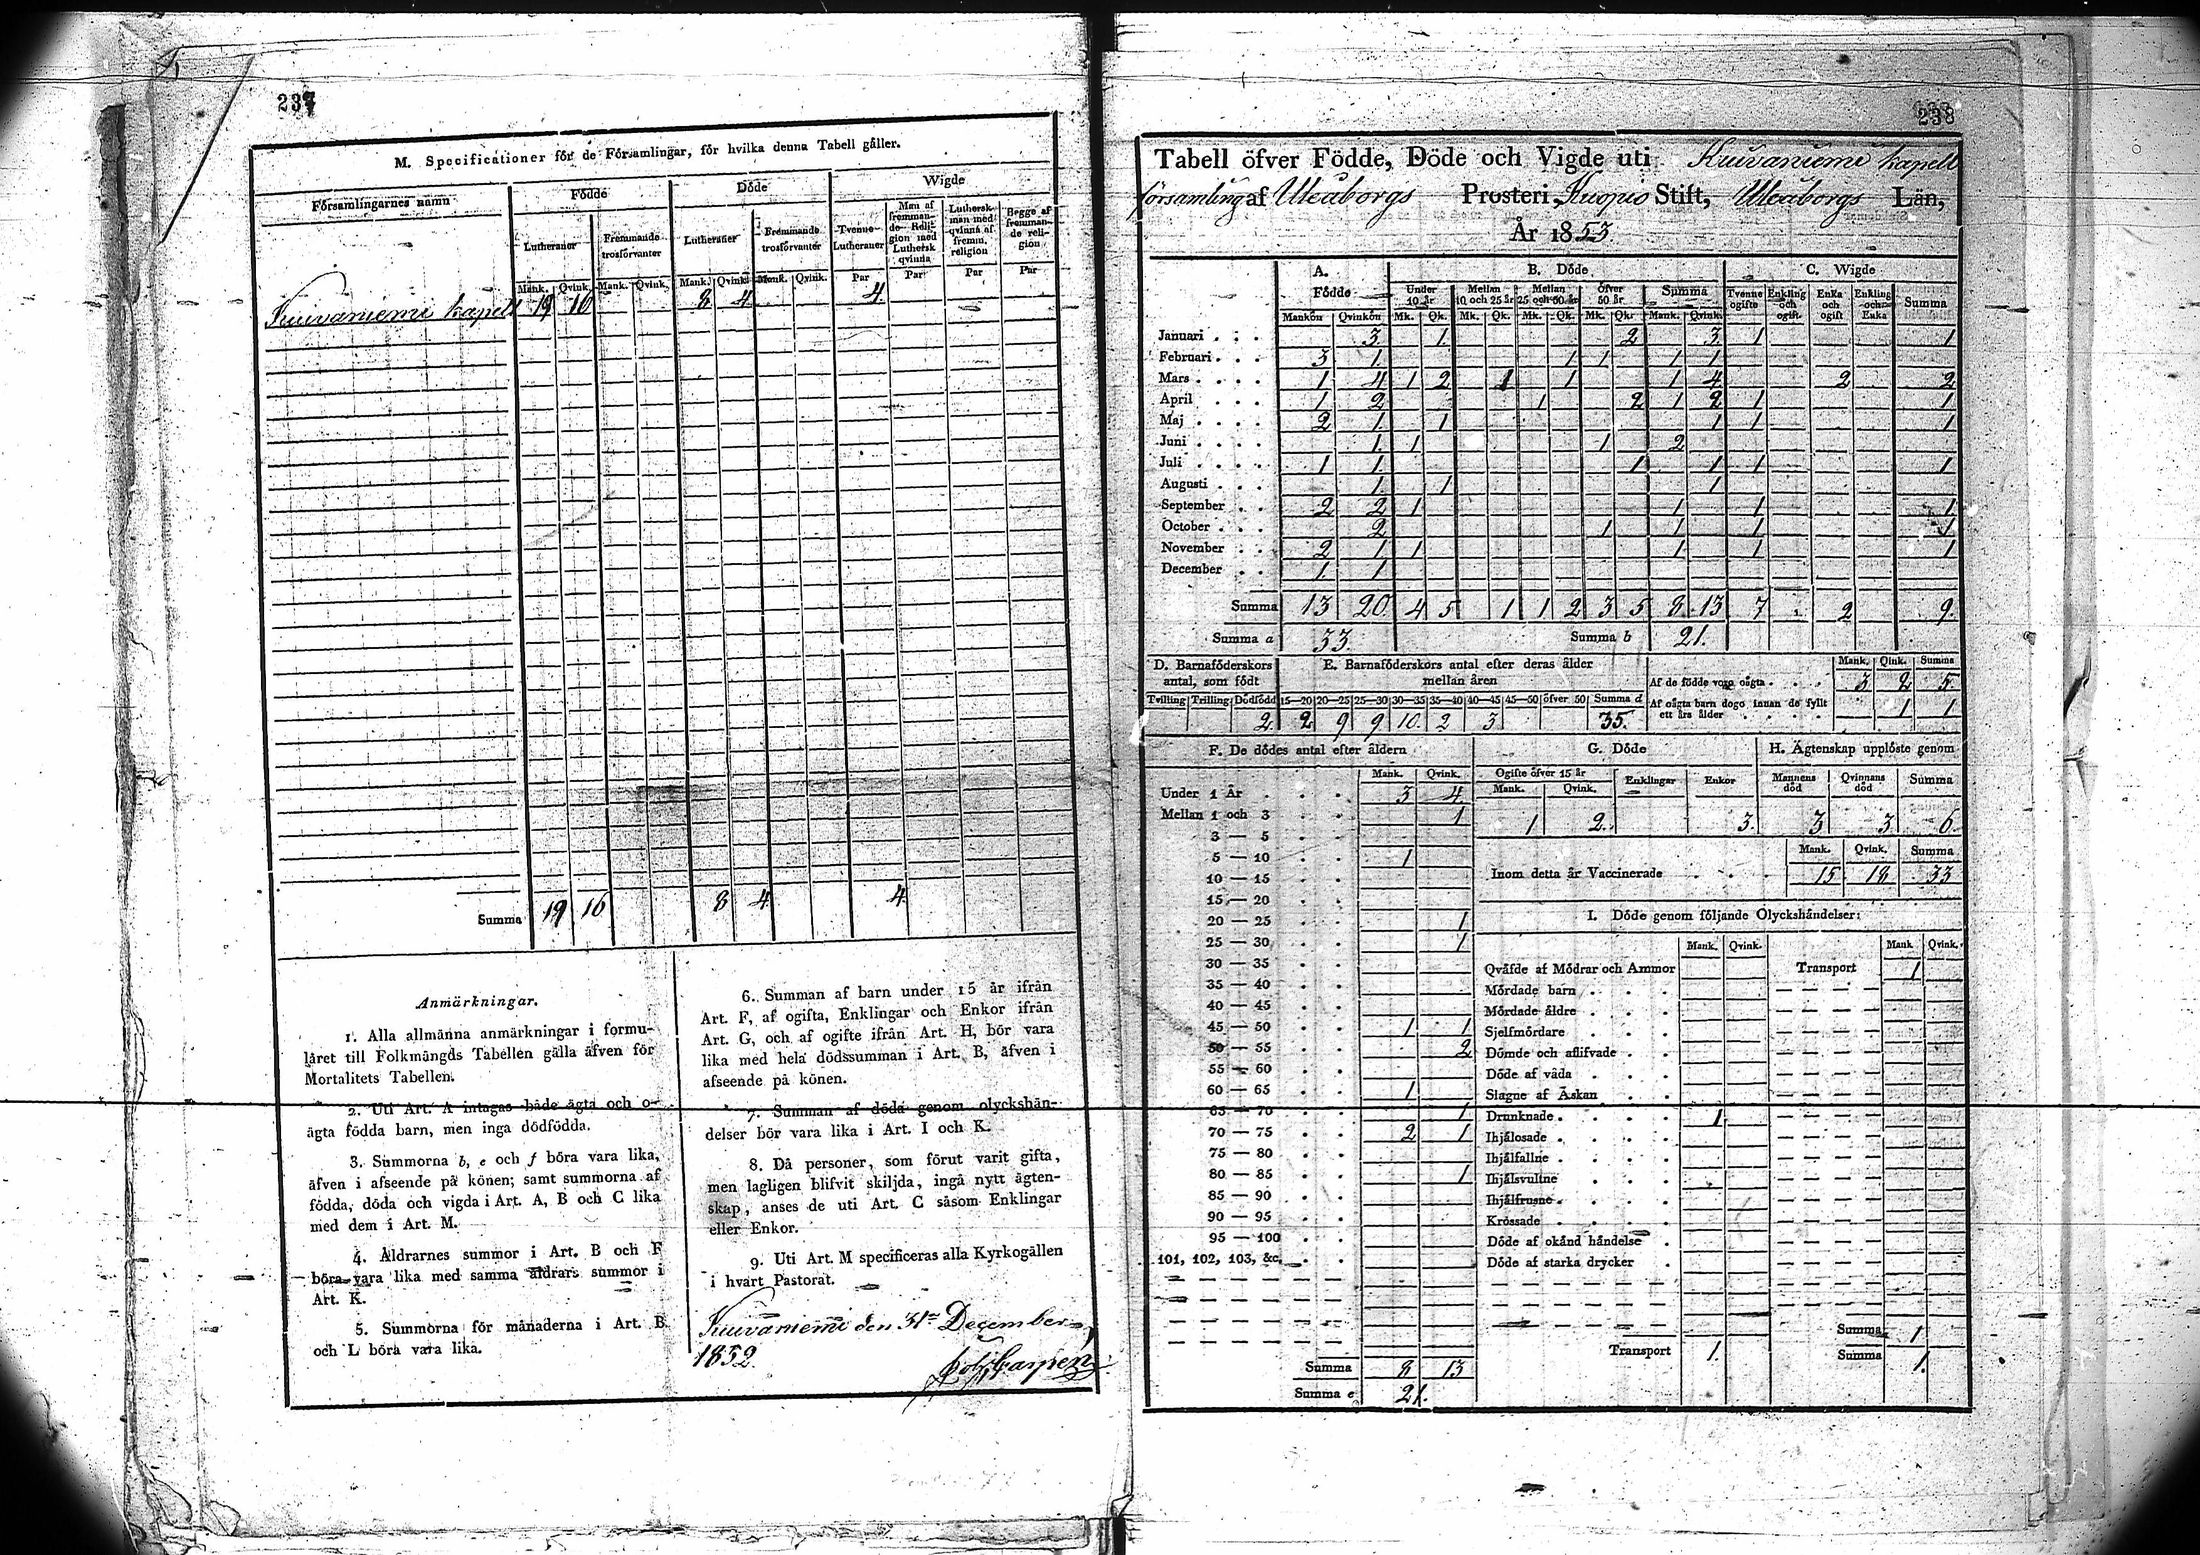 237
M. Specificationer för de Församlingar, för hvilka denna Tabell gäller.
Församlingarnes namn Födde Döde Wigde
Lutheraner Fremmande trosförvanter Lutheraner Fremmande trosförvanter Tvenne Lutheraner Man af fremmande Religion med Luthersk qvinna Luthersk man med qvinna af fremm. religion Begge af fremmande religion
Mank. Qvink. Mank. Qvink. Mank. Qvink. Mank. Qvink. Par Par Par Par
Kuivaniemi kapell 19 16 8 4 4
Summa 19 16 8 4 4
Anmärkningar.
1. Alla allmänna anmärkningar i formu-
läret till Folkmängds Tabellen gälla äfven för
Mortalitets Tabellen.
2. Uti Art. A intagas både ägta och o-
ägta födda barn, men inga dödfödda.
3. Summorna b, e och f böra vara lika,
äfven i afseende på könen; samt summorna af
födda, döda och vigda i Art. A, B och C lika
med dem i Art. M.
4. Åldrarnes summor i Art. B och F
böra vara lika med samma åldrars summor i
Art. K.
5. Summorna för månaderna i Art. B
och L böra vara lika.
6. Summan af barn under 15 år ifrån
Art. F, af ogifta, Enklingar och Enkor ifrån
Art. G, och af ogifte ifrån Art. H, bör vara
lika med hela dödssumman i Art. B, äfven i
afseende på könen.
7. Summan af döda genom olyckshän-
delser bör vara lika i Art. I och K.
8. Då personer, som förut varit gifta,
men lagligen blifvit skiljda, ingå nytt ägten-
skap, anses de uti Art. C såsom Enklingar
eller Enkor.
9. Uti Art. M specificeras alla Kyrkogällen
i hvart Pastorat.
Kuivaniemi den 31 December
1852.
238
Tabell öfver Födde, Döde och Vigde uti Kuivaniemi kapell
församling af Uleåborgs Prosteri, Kuopio Stift, Uleåborgs Län,
År 1853.
A. Födde B. Döde C. Wigde
Under 10 år Mellan 10 och 25 år Mellan 25 och 50 år Öfver 50 år Summa Tvenne ogifte Enkling och ogift Enka och ogift Enkling och Enka Summa
Mankön Qvinkön Mk. Qk. Mk. Qk. Mk. Qk. Mk. Qk. Mank. Qvink.
Januari 3 1 2 3 1 1
Februari 3 1 1 1 1 1
Mars 1 4 1 2 1 1 1 4 2 2
April 1 2 1 2 1 2 1 1
Maj 2 1 1 1 1 1
Juni 1 1 1 2
Juli 1 1 1 1 1 1
Augusti 1 1 1
September 2 2 1 1 1 1
October 2 1 1 1 1
November 2 1 1 1 1 1
December 1 1
Summa 13 20 4 5 1 1 2 3 5 8 13 7 2 9.
Summa a 33. Summa b 21.
D. Barnaföderskors antal, som födt
Tvilling Trilling Dödfödd
2
E. Barnaföderskors antal efter deras ålder mellan åren
15—20 20—25 25—30 30—35 35—40 40—45 45—50 öfver 50 Summa d
2 9 9 10 2 3 35.
Mank. Qink. Summa
Af de födde voro oägta 3 2 5
Af oägta barn dogo innan de fyllt ett års ålder 1 1
F. De dödes antal efter åldern
Mank. Qvink.
Under 1 År 3 4
Mellan 1 och 3 1
3 — 5
5 — 10 1
10 — 15
15 — 20
20 — 25 1
25 — 30 1
30 — 35
35 — 40
40 — 45
45 — 50 1 1
50 — 55 2
55 — 60
60 — 65 1
65 — 70 1
70 — 75 2 1
75 — 80
80 — 85 1
85 — 90
90 — 95
95 — 100
101, 102, 103, &c.
Summa 8 13
Summa e 21.
G. Döde
Ogifte öfver 15 år Enklingar Enkor
Mank. Qvink.
1 2. 3.
H. Ägtenskap upplöste genom
Mannens död Qvinnans död Summa
3 3 6
Mank. Qvink. Summa
Inom detta år Vaccinerade 15 18 33
I. Döde genom följande Olyckshändelser:
Mank. Qvink. Mank. Qvink.
Qväfde af Mödrar och Ammor Transport 1
Mördade barn
Mördade äldre
Sjelfmördare
Dömde och aflifvade
Döde af våda
Slagne af Åskan
Drunknade 1
Ihjälosade
Ihjälfallne
Ihjälsvultne
Ihjälfrusne
Krossade
Döde af okänd händelse
Döde af starka drycker
Summa 1
Transport 1. Summa 1.